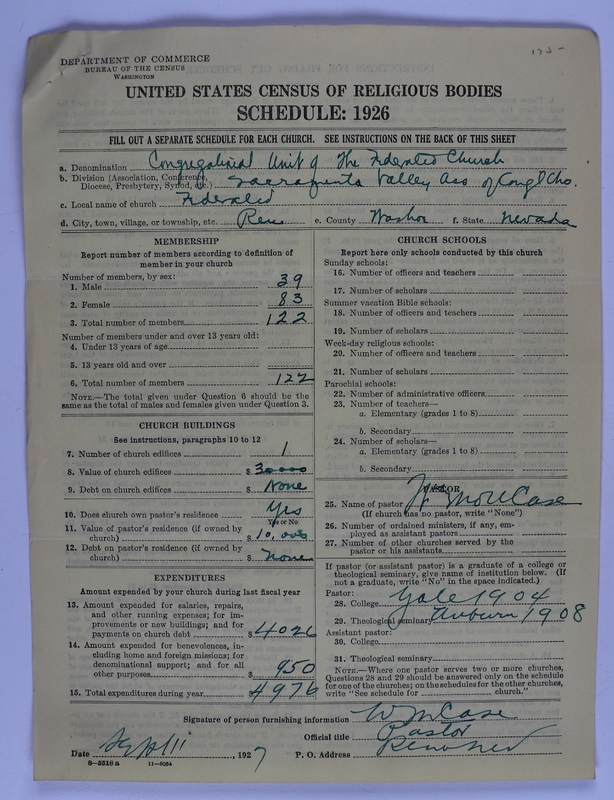 DEPARTMENT OF COMMERCE
BUREAU OF THE CENSUS
WASHINGTON
UNITED STATES CENSUS OF RELIGIOUS BODIES
SCHEDULE: 1926
FILL OUT A SEPARATE SCHEDULE FOR EACH CHURCH. SEE INSTRUCTIONS ON THE BACK OF THIS SHEET
a. Denomination Congregational Unit of The Federated Church
b. Division (Association, Conference, Diocese, Presbytery, Synod, etc.) Sacramento Valley Ass of Congl Chs.
c. Local name of church Federated
d. City, town, village, or township, etc. Reno e. County Washoe f. State Nevada
MEMBERSHIP
Report number of members according to definition of
member in your church
Number of members, by sex:
1. Male 39
2. Female 83
3. Total number of members 122
Number of members under and over 13 years old:
4. Under 13 years of age
5. 13 years old and over
6. Total number of members 122
NOTE.—The total given under Question 6 should be the
same as the total of males and females given under Question 3.
CHURCH BUILDINGS
See instructions, paragraphs 10 to 12
7. Number of church edifices 1
8. Value of church edifices $ 30000
9. Debt on church edifices $ None
10. Does church own pastor's residence? Yes
Yes or No
11. Value of pastor's residence (if owned by
church) $ 10,000
12. Debt on pastor's residence (if owned by
church) $ None
EXPENDITURES
Amount expended by your church during last fiscal year
13. Amount expended for salaries, repairs,
and other running expenses; for im-
provements or new buildings; and for
payments on church debt $ 4026
14. Amount expended for benevolences, in-
cluding home and foreign missions; for
denominational support; and for all
other purposes $ 950
15. Total expenditures during year $ 4976
CHURCH SCHOOLS
Report here only schools conducted by this church
Sunday schools:
16. Number of officers and teachers
17. Number of scholars
Summer vacation Bible schools:
18. Number of officers and teachers
19. Number of scholars
Week-day religious schools:
20. Number of officers and teachers
21. Number of scholars
Parochial schools:
22. Number of administrative officers
23. Number of teachers—
a. Elementary (grades 1 to 8)
b. Secondary
24. Number of scholars—
a. Elementary (grades 1 to 8)
b. Secondary
PASTOR
25. Name of pastor Case
(If church has no pastor, write "None")
26. Number of ordained ministers, if any, em-
ployed as assistant pastors
27. Number of other churches served by the
pastor or his assistants
If pastor (or assistant pastor) is a graduate of a college or
theological seminary, give name of institution below. (If
not a graduate, write "No" in the space indicated.)
Pastor:
28. College Yale 1904
29. Theological seminary Auburn 1908
Assistant pastor:
30. College
31. Theological seminary
NOTE.—Where one pastor serves two or more churches,
Questions 28 and 29 should be answered only on the schedule
for one of the churches; on the schedules for the other churches,
write "See schedule for church."
Signature of person furnishing information W M Case
Official title Pastor
Date Sept 11, 1927 P. O. Address Reno Nev
8—5518 a 11—9054